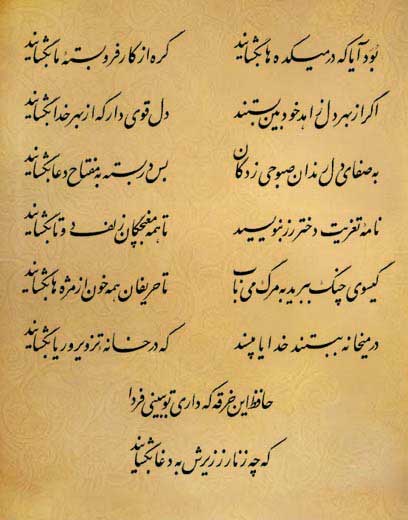 بُوَد آیا که در میکده ها بگشایند گره از کار فروبستهٔ ما بگشایند
اگر از بهر دل زاهد خودبین بستند دل قوی دار که از بهر خدا بگشایند
به صفای دل رندان صبوحی زدگان بس در بسته به مفتاح دعا بگشایند
نامه تعزیت دختر رز بنویسید تا همه مغبچگان زلف دوتا بگشایند
گیسوی چنگ ببرید به مرگ می ناب تا حریفان همه خون از مژه ها بگشایند
در میخانه ببستند خدایا مپسند که در خانه تزویر و ریا بگشایند
حافظ این خرقه که داری تو ببینی فردا
که چه زنار ز زیرش به دغا بگشایند